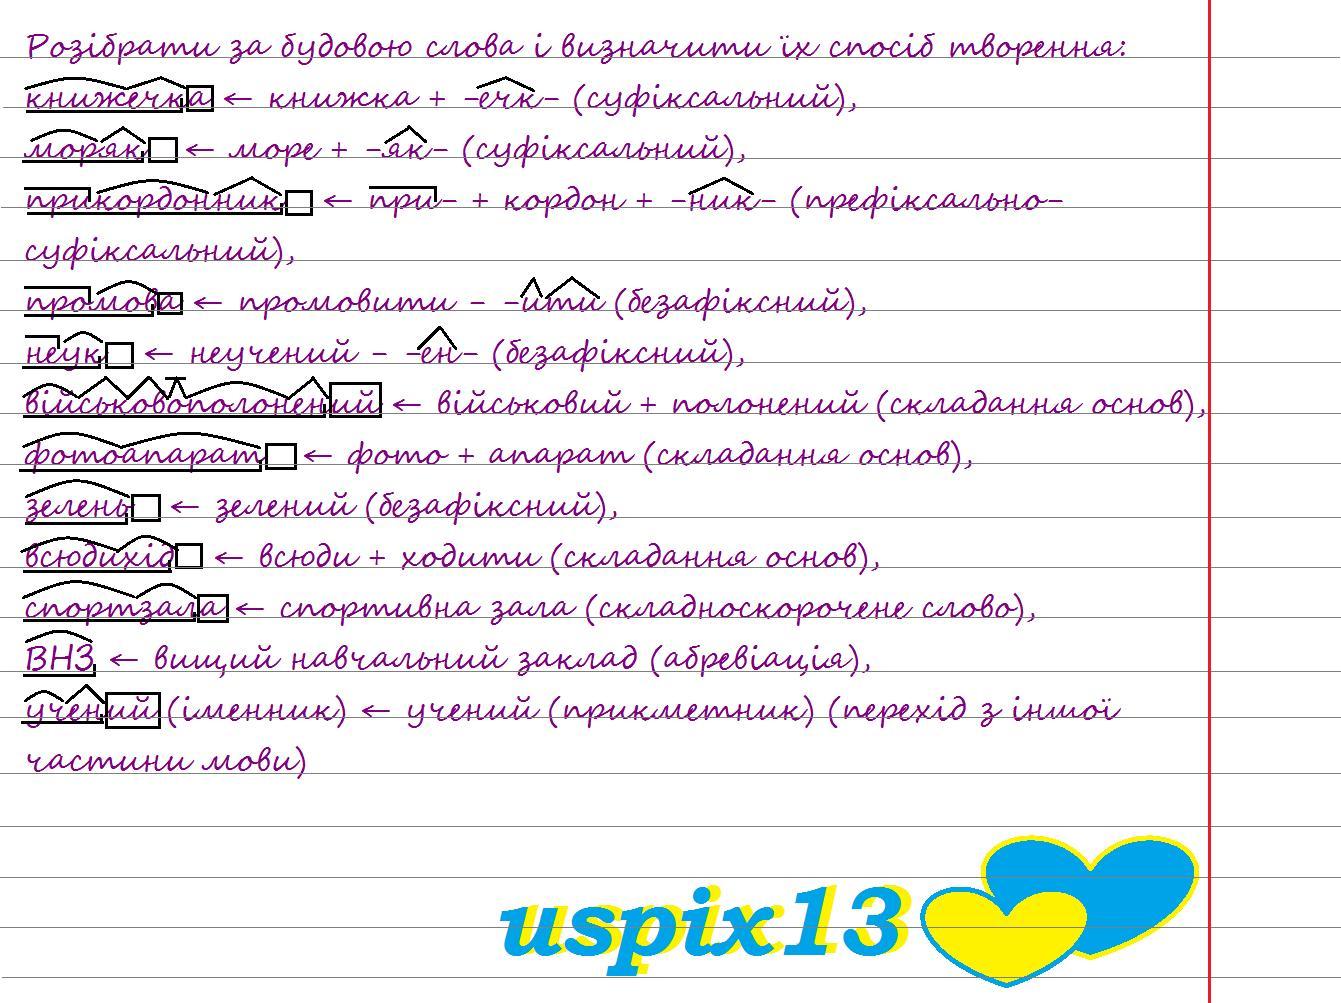 Розібрати за будовою слова і визначити їх спосіб творення:
книжечка ← книжка + -ечк- (суфіксальний),
моряк ← море + -як- (суфіксальний),
прикордонник ← при- + кордон + -ник- (префіксально-
суфіксальний),
промова ← промовити - -ити (безафіксний),
неук ← неучений - -ен- (безафіксний),
військовополонений ← військовий + полонений (складання основ),
фотоапарат ← фото + апарат (складання основ),
зелень ← зелений (безафіксний),
всюдихід ← всюди + ходити (складання основ),
спортзала ← спортивна зала (складноскорочене слово),
ВНЗ ← вищий навчальний заклад (абревіація),
учений (іменник) ← учений (прикметник) (перехід з іншої
частини мови)
uspix13